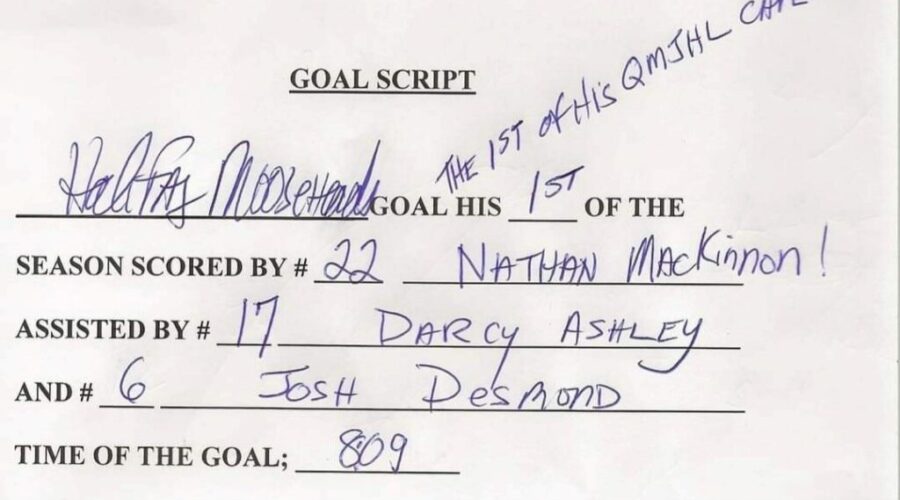 GOAL SCRIPT
THE 1ST OF HIS QMJHL
Halifax Mooseheads GOAL HIS 1ST OF THE
SEASON SCORED BY # 22 NATHAN MacKinnon!
ASSISTED BY # 17 DARCY ASHLEY
AND # 6 JOSH DesMOND
TIME OF THE GOAL; 8:09